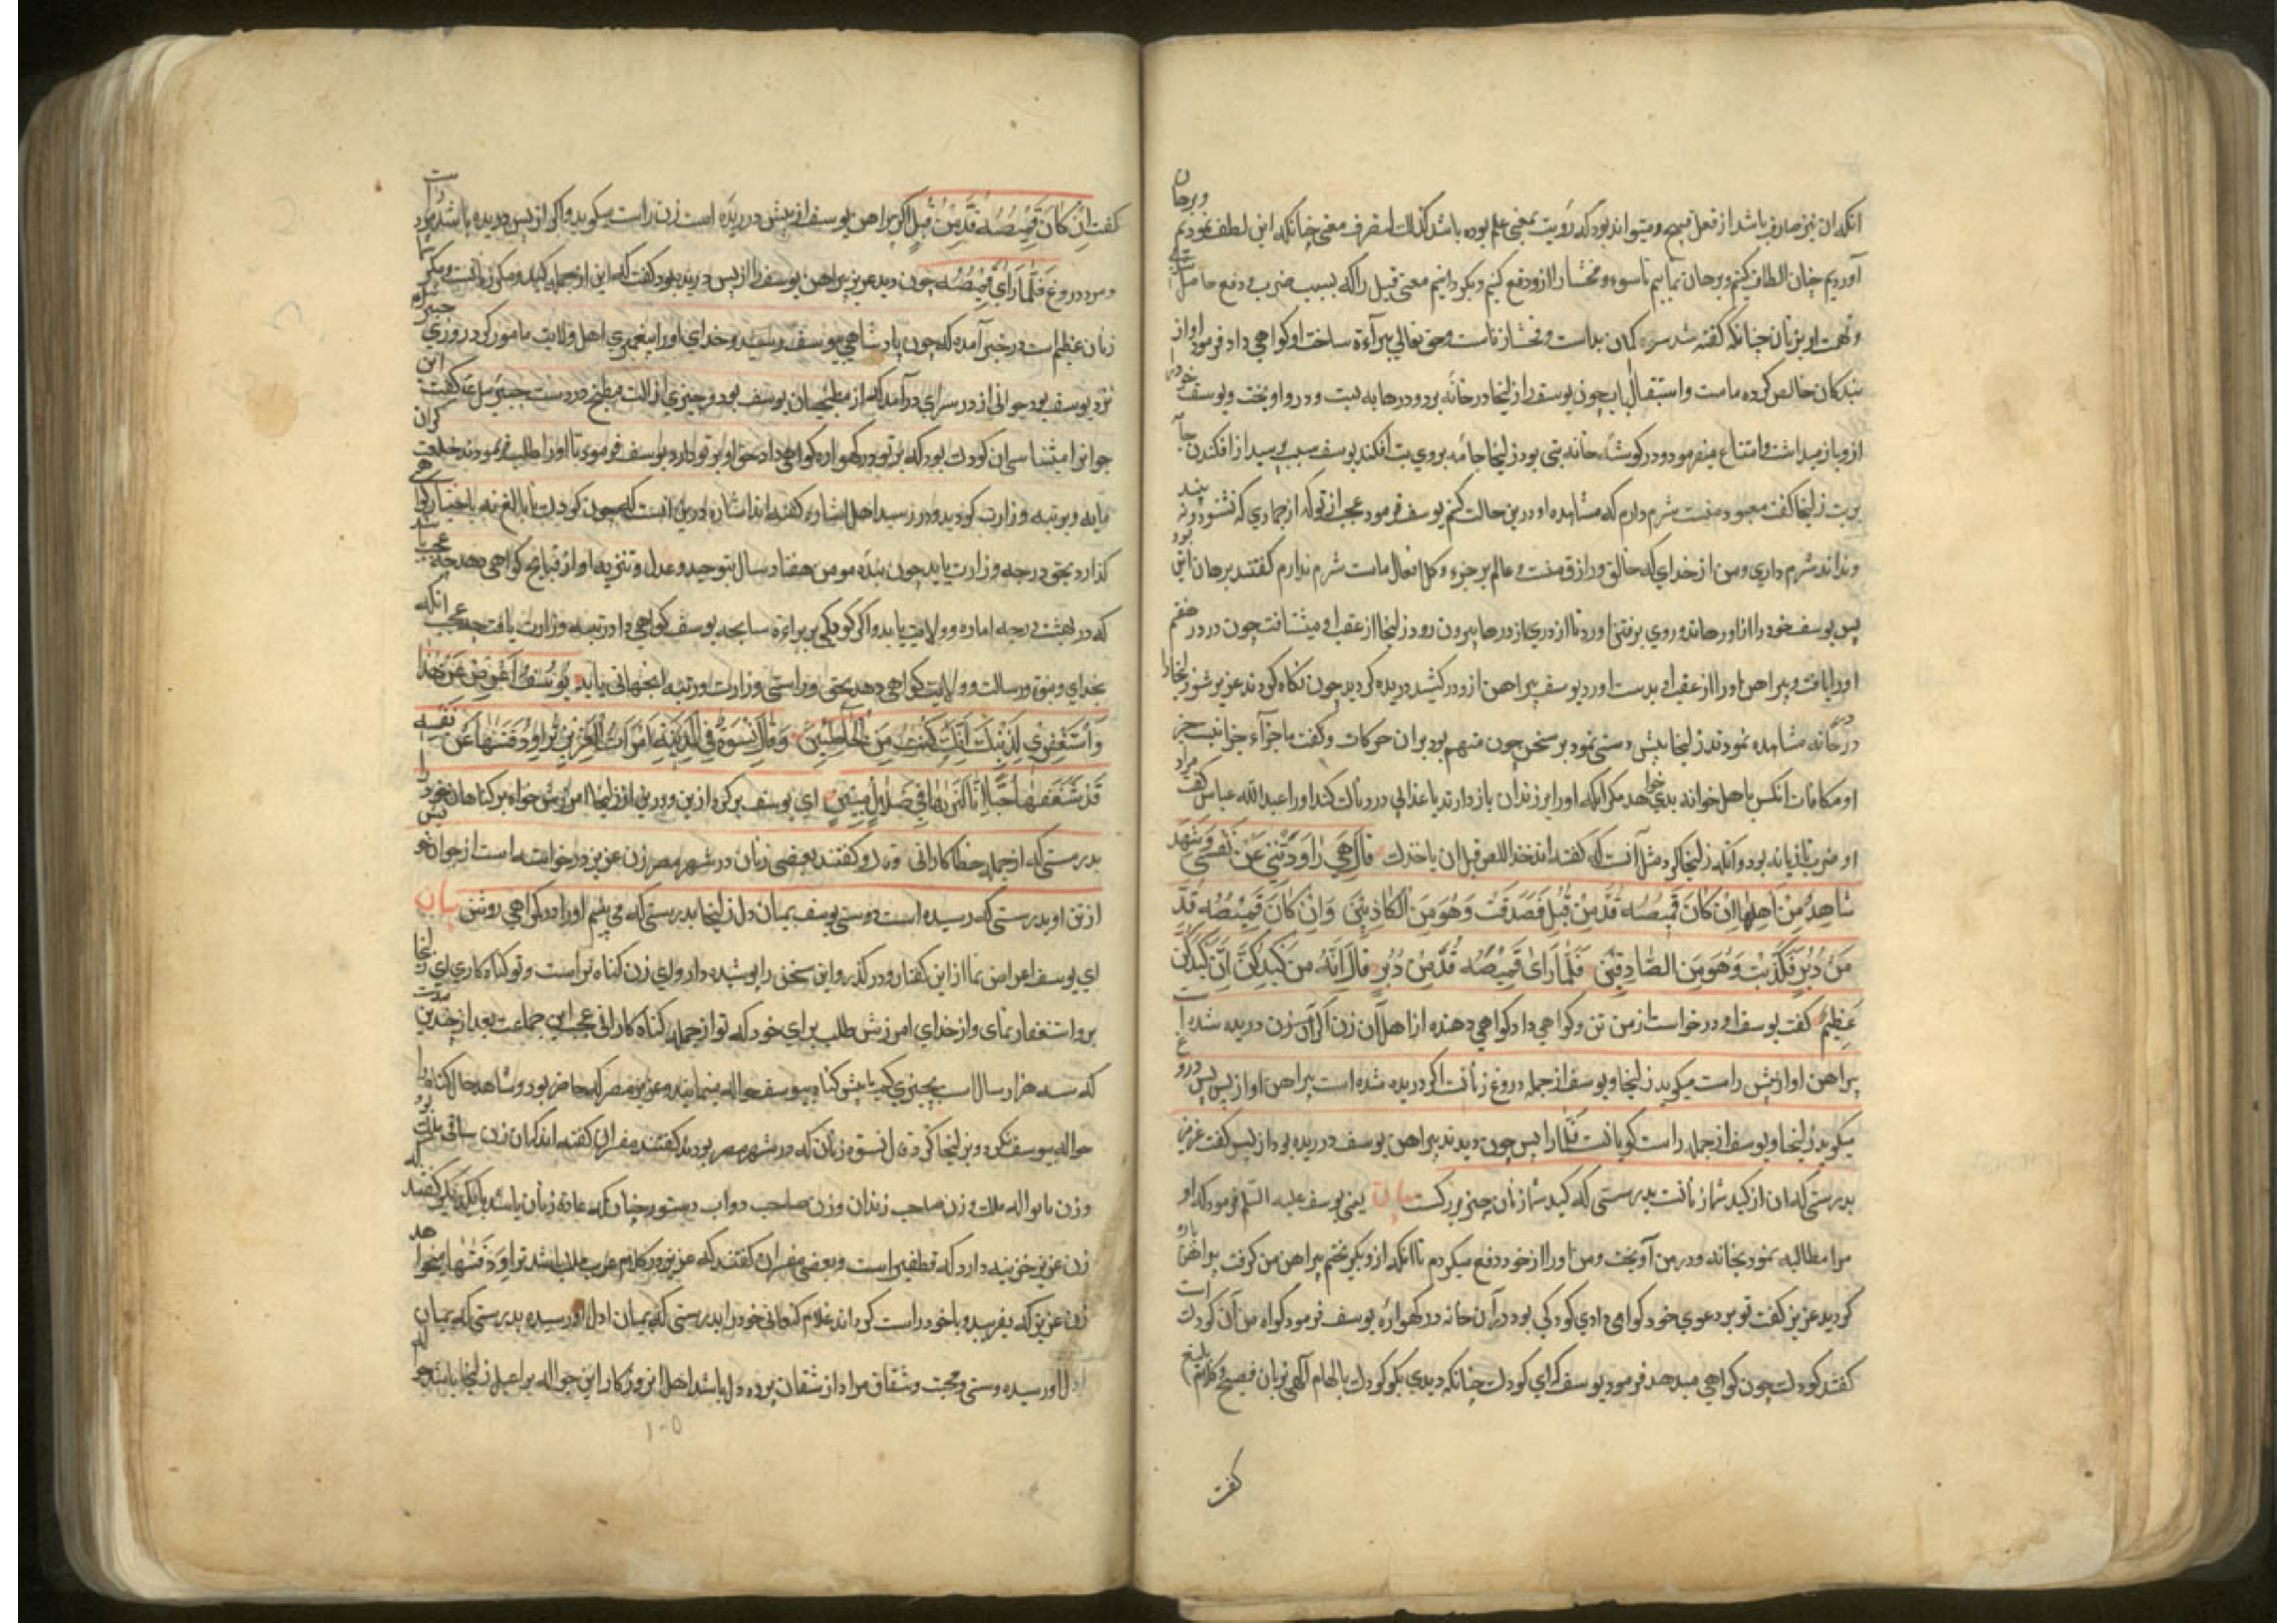 انکه ان نیز صارف باشد از فعل قبیح و میتواند بود که رؤیت بمعنی علم بوده باشد کذلک لنصرف معنی چنانکه این لطف نمودیم و برهان
آوردیم چنان الطاف کنیم و برهان نماییم تا سوء و فحشا را ازو دفع کنیم و بگردانیم معنی قبل را که بسبب ضرب و دفع حاصل
و تهمت او بزنان چنانکه کفته شد سوء کمان بد است و فحشا زناست و حق تعالی ببراءة ساحت او کواهی داد فرمود او از
بندکان خالص کرده ماست و استبقا الباب چون یوسف را زلیخا در خانه برد و درها به بست و در او اویخت و یوسف خود را
ازو باز میداشت و امتناع میفرمود و در کوشهٔ خانه بتی بود زلیخا جامه بروی بت افکند یوسف سبب پرسید از افکندن جامه
بر بت زلیخا کفت معبود منست شرم دارم که مشاهده او درین حالت کنم یوسف فرمود عجب از تو که از جمادی که نشنود و نه بیند
و نداند شرم داری و من از خدای که خالق و رازق منست و عالم بر جزء و کل افعال ماست شرم ندارم کفتند برهان این بود
پس یوسف خود را از او رهاند و روی برفتن اورد تا از دری از درها بیرون رود زلیخا از عقب او میشتافت چون در در هفتم
او را یافت و پیراهن او را از عقب او بدست اورد یوسف پیراهن ازو درکشید دریده کردید چون نکاه کردند عزیز شوی زلیخا را
در خانه مشاهده نمودند زلیخا پیش دستی نمود بر سخن چون متهم بود بران حرکات و کفت ما جزآء جزا نیست جز
او مکافات انکس با اهل خوانه بدی خواهد مکر انکه او را بر زندان باز دارند یا عذابی دردناک کند او را عبدالله عباس کفت مراد
او ضرب تازیانه بود و انکه زلیخا کرد مثل آنست که کفته اند خذ اللص قبل ان یاخذک قَالَ هِيَ رَاوَدَتْنِي عَنْ نَفْسِي وَشَهِدَ
شَاهِدٌ مِنْ اَهْلِهَا اِنْ كَانَ قَمِيصُهُ قُدَّ مِنْ قُبُلٍ فَصَدَقَتْ وَهُوَ مِنَ الْكَاذِبِينَ وَاِنْ كَانَ قَمِيصُهُ قُدَّ
مِنْ دُبُرٍ فَكَذَبَتْ وَهُوَ مِنَ الصَّادِقِينَ فَلَمَّا رَاَى قَمِيصَهُ قُدَّ مِنْ دُبُرٍ قَالَ اِنَّهُ مِنْ كَيْدِكُنَّ اِنَّ كَيْدَكُنَّ
عَظِيمٌ کفت یوسف او درخواست از من تن و کواهی داد کواهی دهنده از اهل آن زن اکر آن زن دریده شده است
پیراهن او از پیش راست میکوید زلیخا و یوسف از جمله دروغ زنانست اکر دریده شده است پیراهن او از پس پس دروغ
میکوید زلیخا و یوسف از جمله راست کویانست فلما را پس چون دیدند پیراهن یوسف دریده بود از پس کفت عزیز
بدرستی که ان از کید شما زنانست بدرستی که کید شما زنان چیزی بزرکست بیان یعنی یوسف علیه السلم فرمود که او
مرا مطالبه نمود بخانه و در من آویخت و من او را از خود دفع میکردم تا انکه ازو بکریختم پیراهن من کرفت پیراهن پاره
کردید عزیز کفت تو بر دعوی خود کواهی داری کودکی بود در آن خانه در کهواره یوسف فرمود کواه من آن کودک است
کفتند کودک چون کواهی میدهد فرمود یوسف که ای کودک چنانکه دیدی بکو کودک بالهام آلهی بزبان فصیح و کلام بلیغ
کفت
کفت اِنْ كَانَ قَمِيصُهُ قُدَّ مِنْ قُبُلٍ اکر پیراهن یوسف از پیش دریده است زن راست میکوید و اکر از پس دریده باشد مرد راست
و مرد دروغ فَلَمَّا رَاَى قَمِيصَهُ چون دید عزیز پیراهن یوسف را از پس دریده بود کفت که این از جمله کید و مکر زنانست و مکر شما
زنان عظیم است در خبر آمده که چون پادشاهی بیوسف رسید و خدای او را پیغمبری اهل ولایت مامور کرد روزی جبرئیل
نزد یوسف بود جوانی از در سرای درآمد که از مطبخیان یوسف بود و چیزی از الات مطبخ در دست جبرئیل ع کفت این
جوانرا میشناسی ان کودک بود که بر تو در کهواره کواهی داد حق او بر تو دارد یوسف فرمود تا او را طلب فرمودند خلعت کران
یافه و برتبه وزارت کردید و در رسید اهل اشاره کفته اند اشاره درین انست که چون کودک نابالغ نه باختیار کواهی
کذارد بحق درجه وزارت یابد چون بندهٔ مومن هفتاد سال بتوحید و عدل و تنزیه او از قبایح کواهی دهد چه عجب باشد
که در بهشت درجه اماره و ولایت یابد و اکر کودکی بر براءة ساحه یوسف کواهی داد رتبه وزارت یافت چه عجب انکه
بخدای و بنبوة و رسالت و ولایت کواهی دهد بحق و راستی وزارت و رتبه انجهانی یابد يُوسُفُ اَعْرِضْ عَنْ هَذَا
وَاسْتَغْفِرِي لِذَنْبِكِ اِنَّكِ كُنْتِ مِنَ الْخَاطِئِينَ وَقَالَ نِسْوَةٌ فِي الْمَدِينَةِ امْرَاَتُ الْعَزِيزِ تُرَاوِدُ فَتَاهَا عَنْ نَفْسِهِ
قَدْ شَغَفَهَا حُبًّا اِنَّا لَنَرَاهَا فِي ضَلَالٍ مُبِينٍ ای یوسف بر کرد ازین و درین ای زلیخا امرزش خواه بر کناهان خود را
بدرستی که از جمله خطاکارانی وقال و کفتند بعضی زنان در شهر مصر زن عزیز درخواسته است از جوان خویش
از تن او بدرستی که رسیده است دوستی یوسف بمیان دل زلیخا بدرستی که می بینیم او را در کمراهی روشن بیان
ای یوسف اعراض نما از این کفتار و درکذر و این سخن را پوشیده دار و ای زن کناه تراست و تو کناه کاری ای زلیخا
برو استغفار نمای و از خدای امرزش طلب برای خود که تو از جمله کناه کارانی عجب این جماعت بعد از چندین مدت
که سه هزار سال است بچیزی کمتر پیش کناه بیوسف حواله مینمایند و عزیز مصر که حاضر بود و شاهد حال کناه را
حواله بیوسف نکرد و بزلیخا کرد وقال نسوة زنان که در شهر مصر بودند کفتند مفسران کفته اند که ان زن ساقی ملک بود
وزن نانوا له ملک و زن صاحب زندان و زن صاحب دواب دستور چنان که عادة زنان باشد بایکدیکر کفتند که
زن عزیز خزینه دارد که قطفیر است و بعضی مفسران کفتند که عزیز در کلام عرب ملک باشد تُرَاوِدُ فَتَاهَا میخواهد
زن عزیز که بفریبد و باخود راست کرداند غلام کنعانی خود را بدرستی که بمیان دل او رسیده بدرستی که بمیان
دل او رسیده دوستی و محبت و شغاف مراد از شغاف پرده دل باشد اهل این روزکار این حواله بر اعیل زلیخا باشد
۱۰۵